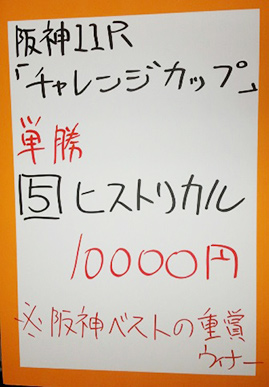 阪神11R
「チャレンジカップ」
単勝
5 ヒストリカル
10000円
※阪神ベストの重賞
ウィナー